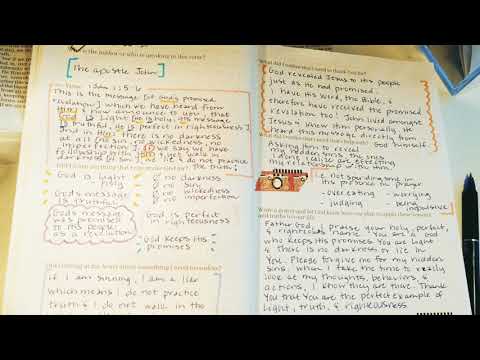 is the author or who is speaking in this verse?
[The apostle John]
1 John 1:5-6
This is the message [of God's promised
revelation] which we have heard from
Him & now announce to you, that
God is Light [He is holy, His message
is truthful, He is perfect in righteousness]
and in Him there is no darkness
at all [no sin, no wickedness, no
imperfection]. If we say we have
fellowship with Him & yet walk in
darkness [of sin], we lie & do not practice
the truth;
God is Light
holy
no sin
no wickedness
no imperfection
God's message
is truthful
God's message
was promised
to His people
as a revelation
God is perfect
in righteousness
God keeps His
promises
if I am sinning, I am a liar
which means I do not practice
truth & I do not walk in the
God revealed Jesus to His people
just as He had promised.
I have His word, the Bible, &
therefore have received the promised
revelation too! John lived amongst
Jesus & knew Him personally. He
heard this message direct from God Himself.
Asking Him to reveal
my hidden sins, the ones
I don't realize are affecting
my relationship w Him.
Not spending time in
His presence or prayer
- overeating - worrying
- judging - being
impulsive
Father God, I praise your holy, perfect,
& righteous name. You are a God
who keeps His promises. You are Light
& there is no darkness or lie in
You. Please forgive me for my hidden
sins, when I take the time to really
look at my thoughts, behaviors, &
actions, I know they are there. Thank
You that You are the perfect example of
Light, truth, & righteousness.